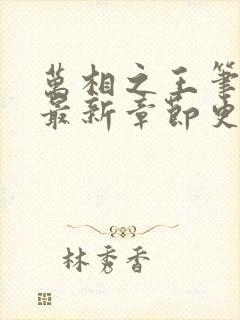 萬相之王筆
最新章節史
林秀香